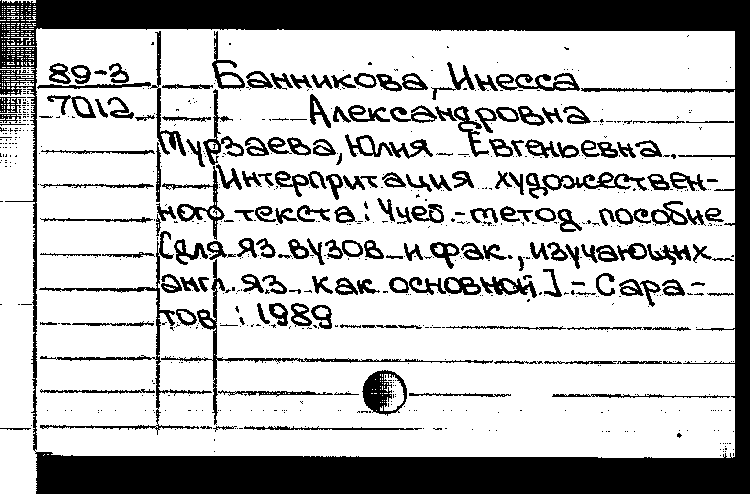 89-3 Банникова, Инесса
7012 Александровна
Мурзаева, Юлия Евгеньевна.
Интерпритация художествен-
ного текста: Учеб.-метод. пособие
[для яз. вузов и фак., изучающих
англ. яз. как основной] - Сара-
тов : 1989